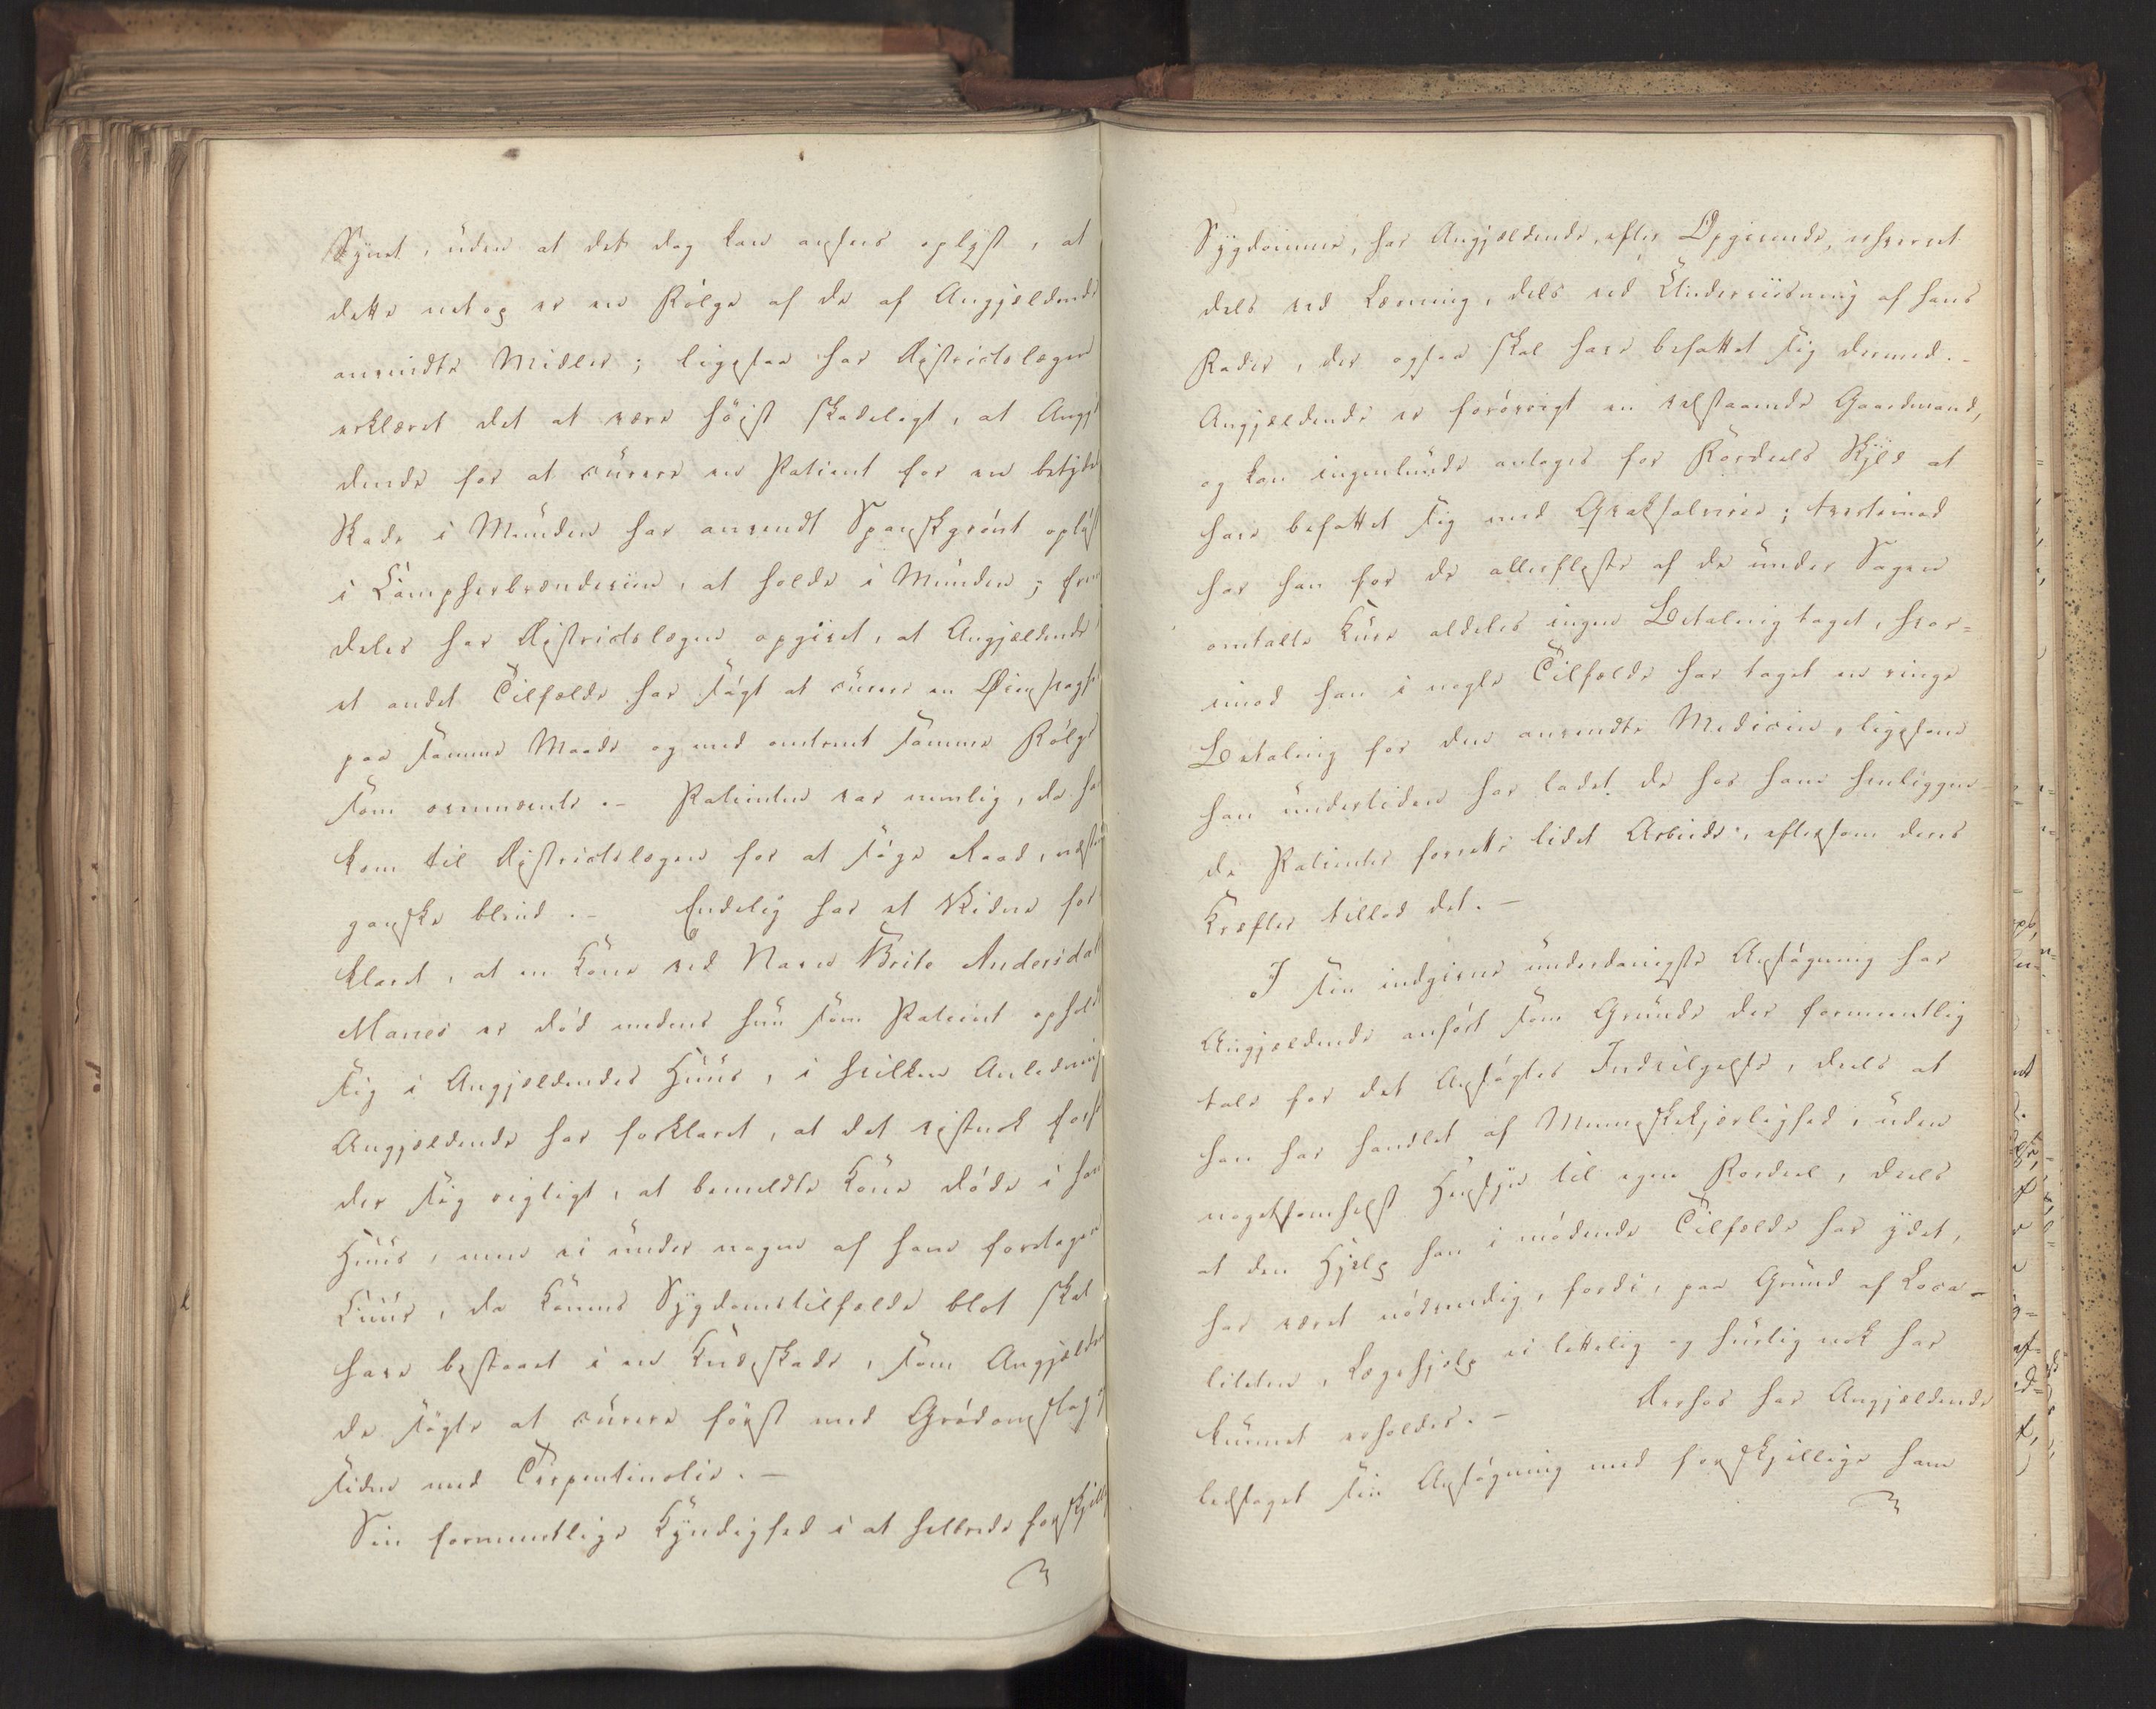 Synet, uden at det dog kan ansees oplyst, at
dette netop er en Følge af de af Angjældende
anvendte Midler; ligesaa har Districtslægen
erklæret det at være høist skadeligt, at Angjæl
dende for at curere en Patient for en betyde
Skade i Munden har anvendt Spanskgrønt opløst
i Campherbrændeviin, at holde i Munden; frem
deles har Districtslægen opgivet, at Angjældende i
et andet Tilfælde har søgt at curere en Øiensvaghe
paa samme Maade og med omtrent samme Følge
som ovennævnte. – Patienten var nemlig, da ha
kom til Districtslægen for at søge Raad, næsten
ganske blind. – Endelig har et Vidne for
klaret, at en Kone ved Navn Brite Andersdat
Manes er død medens hun som Patient opholdt
sig i Angjældendes Huus, i hvilken Anledning
Angjældende har forklaret, at det vistnok forh
der sig rigtigt, at bemeldte Kone døde i han
Huus, men ei under nogen af ham foretagen
Cuur, da Konens Sygdomstilfælde blot skal
have bestaaet i en Knæskade, som Angjælden
de søgte at curere først med Grødomslag,
siden med Terpentinolie. –
Sin formeentlige Kyndighed i at helbrede forskjellig
Sygdomme, har Angjældende, efter Opgivende, erhvervet
dels ved Læsning, dels ved Underviisning af hans
Fader, der ogsaa skal have befattet sig dermed. –
Angjældende er forøvrigt en velstaaende Gaardmand,
og kan ingenlunde antages for Fordeels Skyld at
have befattet sig med Qvaksalverie; tvertimod
har han for de allerfleste af de under Sagen
omtalte Cure aldeles ingen Betaling taget, hvor=
imod han i nogle Tilfælde har taget en ringe
Betaling for den anvendte Medicin, ligesom
han undertiden har ladet de hos ham henliggen
de Patienter forrette lidet Arbeide, eftersom deres
Kræfter tillod det. –
I sin indgivne underdanigste Ansøgning har
Angjældende anført som Grunde der formeentlig
tale for det Ansøgtes Indvilgelse, deels at
han har handlet af Menneskekjærlighed, uden
nogetsomhelst Hensyn til egen Fordeel, deels
at den Hjelp han i mødende Tilfælde har ydet,
har været nødvendig, fordi, paa Grund af Loca-
liteten, Lægehjelp ei lettelig og hurtig nok har
kunnet erholdes. – Derhos har Angjældende
ledsaget sin Ansøgning med forskjellige ham